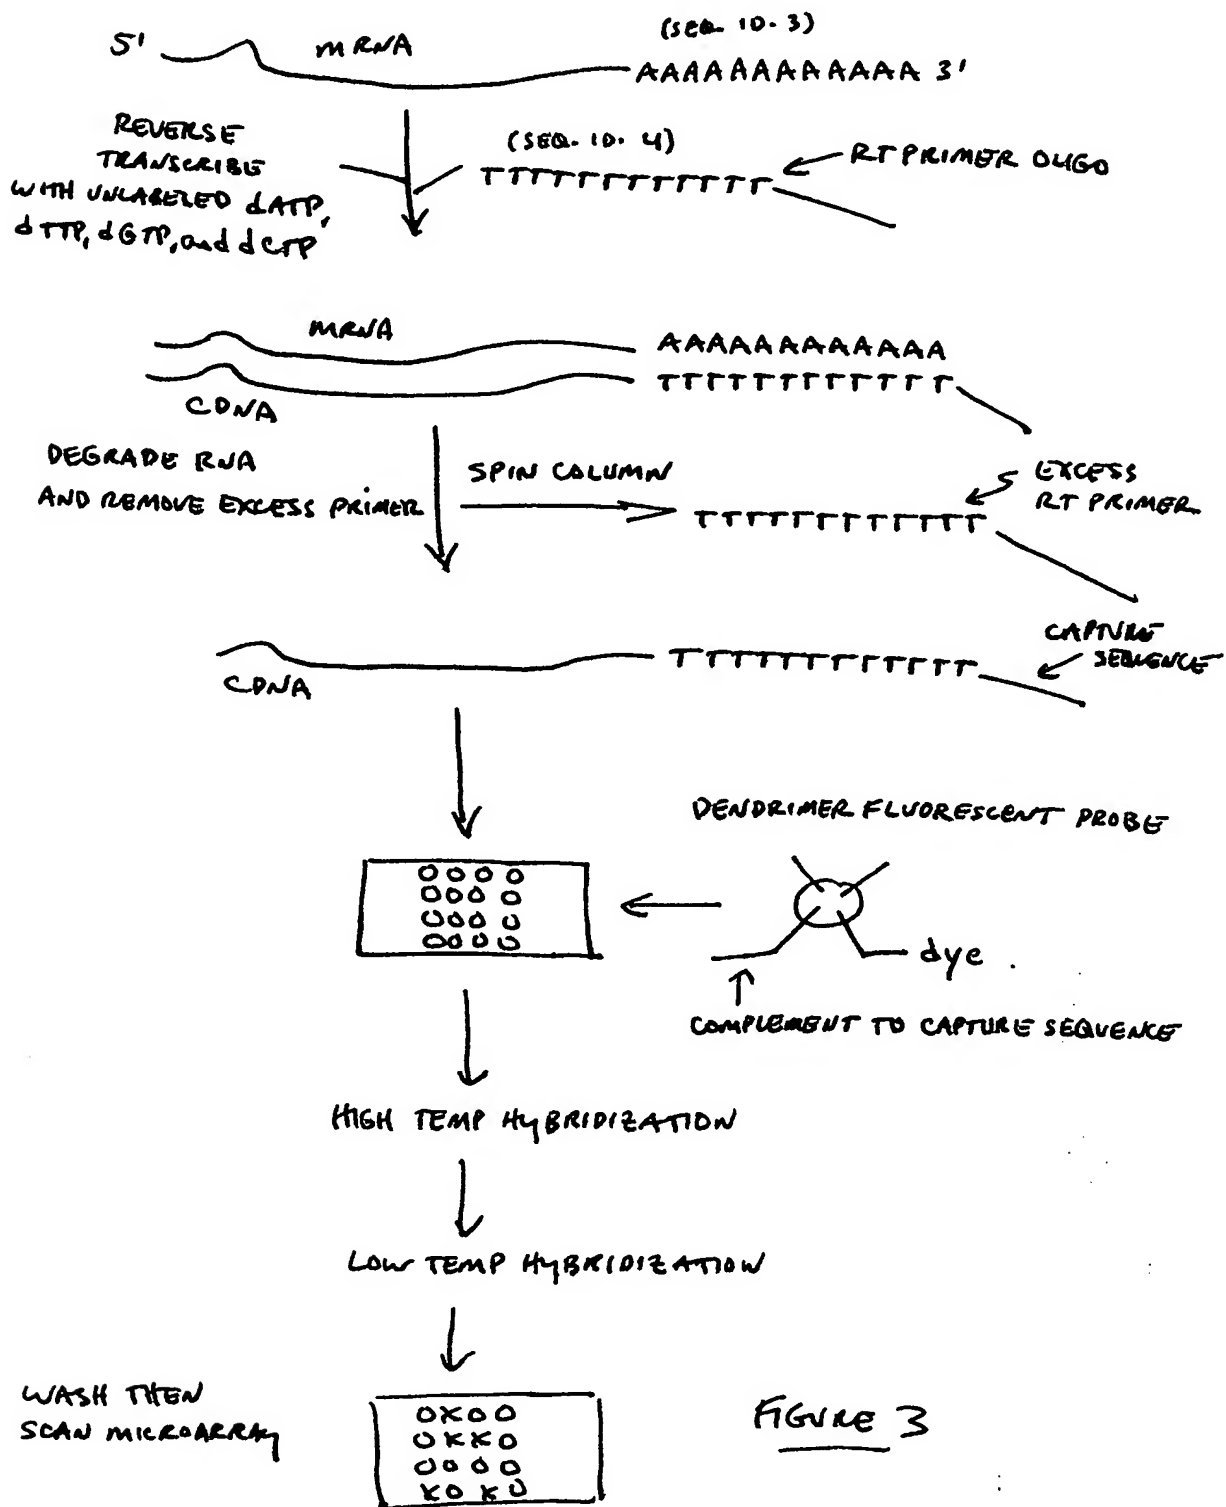 (SEQ. ID. 3)
5' mRNA AAAAAAAAAAAAA 3'
REVERSE
TRANSCRIBE
WITH UNLABELED dATP,
dTTP, dGTP, and dCTP
(SEQ. ID. 4)
TTTTTTTTTTTTT
RT PRIMER OLIGO
mRNA AAAAAAAAAAAAA
TTTTTTTTTTTTT
CDNA
DEGRADE RNA
AND REMOVE EXCESS PRIMER
SPIN COLUMN
TTTTTTTTTTTTT
EXCESS
RT PRIMER
CAPTURE
SEQUENCE
TTTTTTTTTTTTT
CDNA
DENDRIMER FLUORESCENT PROBE
OOOO
OOOO
OOOO
OOOO
dye
COMPLEMENT TO CAPTURE SEQUENCE
HIGH TEMP HYBRIDIZATION
LOW TEMP HYBRIDIZATION
WASH THEN
SCAN MICROARRAY
OXOO
OXXO
OOOO
XOXO
FIGURE 3